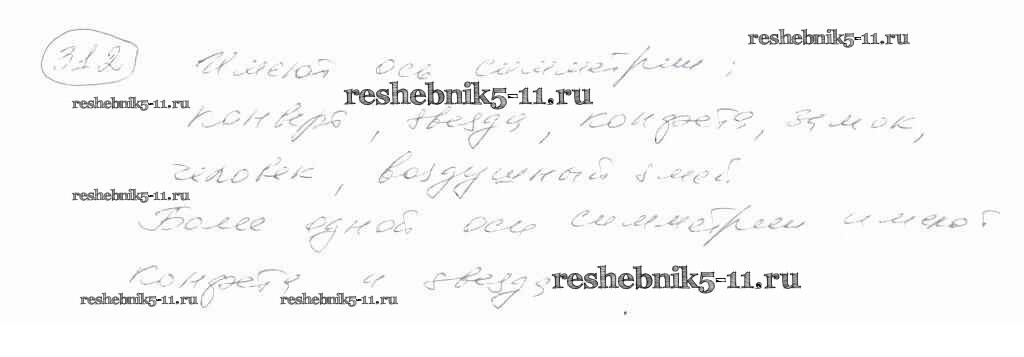 reshebnik5-11.ru
312 Имеют ось симметрии:
reshebnik5-11.ru reshebnik5-11.ru
конверт, звезда, конфета, замок,
человек, воздушный змей.
reshebnik5-11.ru
Более одной оси симметрии имеют
конфета и звезда reshebnik5-11.ru
reshebnik5-11.ru reshebnik5-11.ru